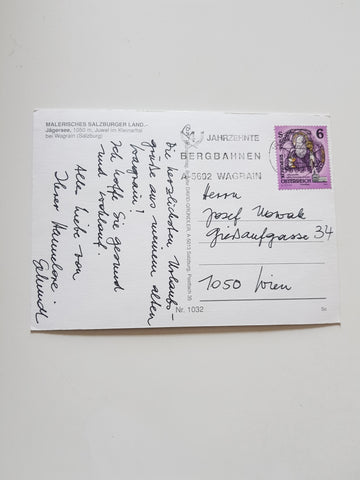 MALERISCHES SALZBURGER LAND.–
Jägersee, 1050 m, Juwel im Kleinarltal
bei Wagrain (Salzburg)
Die herzlichsten Urlaubs-
grüße aus meinem alten
Wagrain!
Ich hoffe Sie gesund
und wohlauf.
Alles Liebe von
Ihrer
JAHRZEHNTE
BERGBAHNEN
A-5602 WAGRAIN
6
S
REPUBLIK
ÖSTERREICH
Herrn
Josef Nowak
Großaufgasse 34
1050 Wien
A-5013 Salzburg, Postfach 35
Nr. 1032